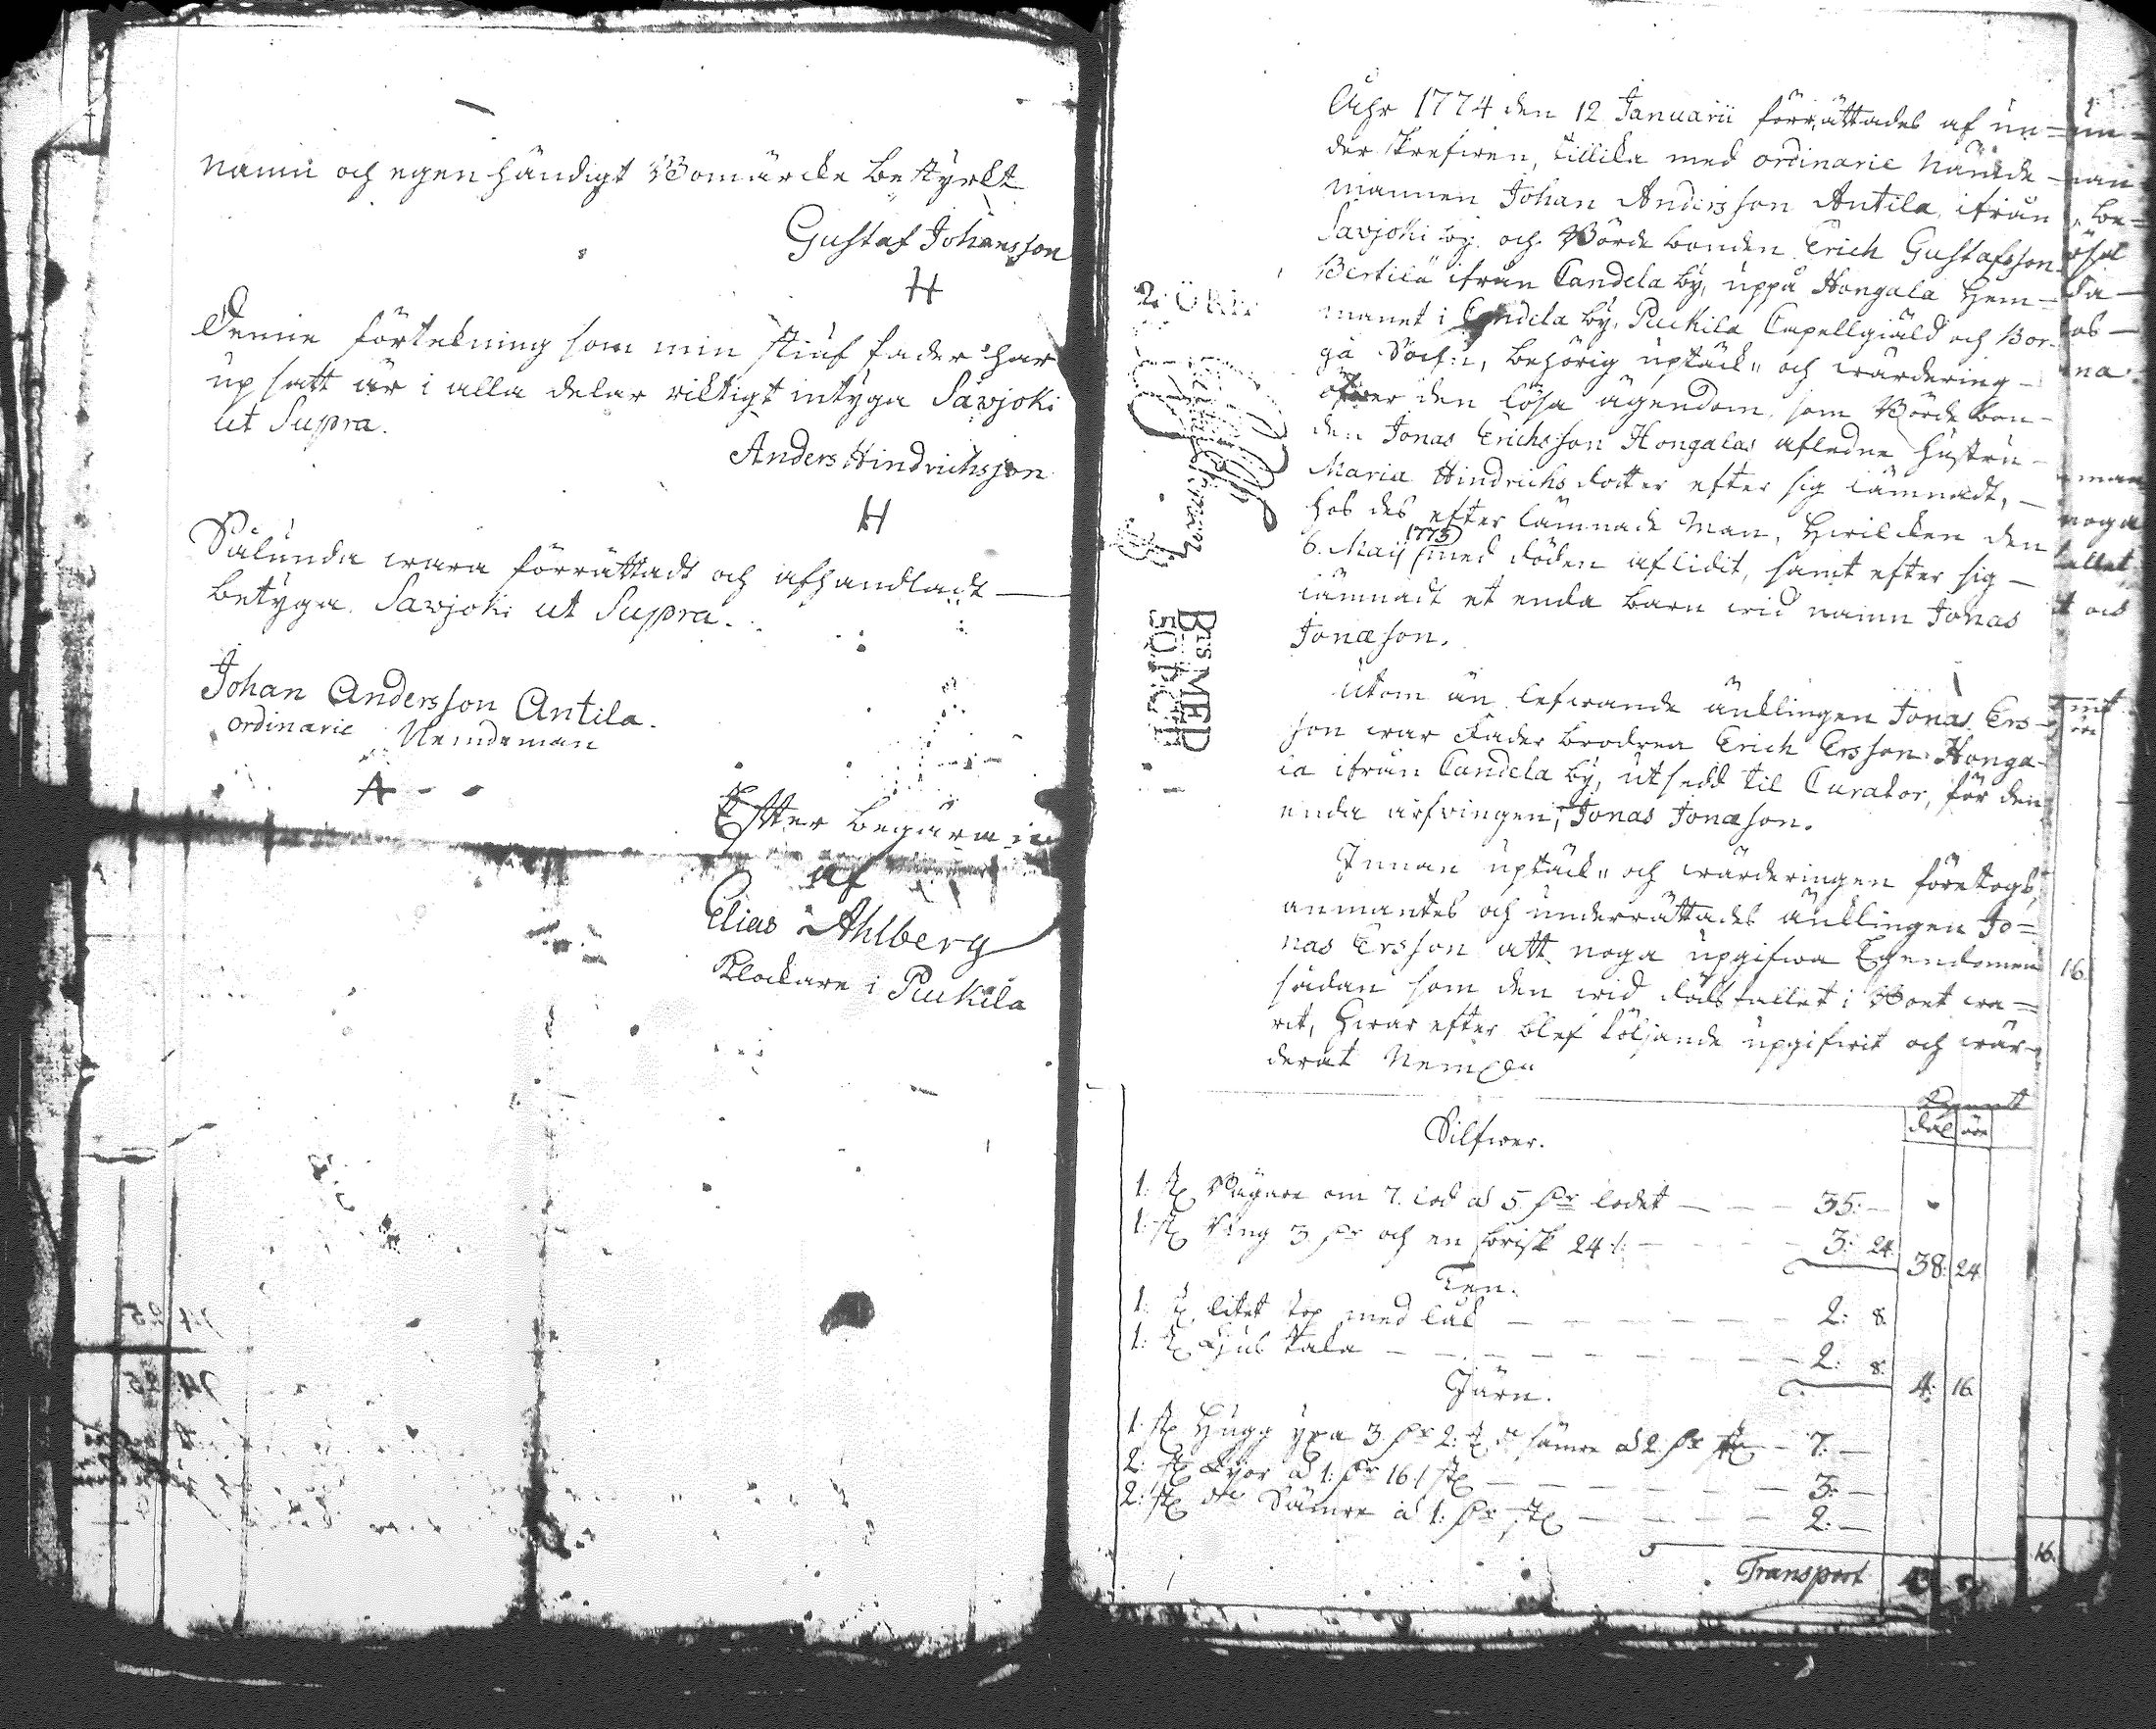 namn och egenhändigt Bomärcke bestyrckt
Gustaf Johansson
H
Denne förtekning som min stiuf fader har
upsatt är i alla delar riktigt intyga Savjoki
ut Supra.
Anders Hindrichsson
H
Sålunda wara förrättadt och afhandladt
betyga. Savjoki ut Supra.
Johan Andersson Antila.
ordinarie Nemdeman
A
Efter begäran
af
Elias Ahlberg
Klockare i Puckila
Åhr 1774 den 12 Januarii förrättades af un=
der skrefwen, tillika med ordinarie Nämde-
mannen Johan Andersson Antila, ifrån
Savjoki by. och Börde bonden Erich Gustafsson
Bertilä ifrån Candela by, uppå Hongala Hem-
manet i Candela by, Puckila Capellgiäld och Bor-
gå Sockn, behörig uptäck- och wärdering-
öfwer den lösa ägendom, som Börde bon-
den Jonas Erichsson Hongalas afledne hustru
Maria Hindrichs dotter efter sig lämnadt,
hos des efter lämnade Man, hwilcken den
6. Maij 1773 med döden aflidit, samt efter sig-
lämnadt et enda barn wid namn Jonas
Jonæson.
Utom än lefwande äncklingen Jonas Ers-
son war Fader brodren Erich Ersson Honga-
la ifrån Candela by, utsedd til Curator, för den
enda arfvingen, Jonas Jonæson.
Innan uptäck- och wärderingen företogs,
anmantes och underrättades äncklingen Jo=
nas Ersson att noga upgifwa Egendomen
sådan som den wid dödsfallet i Boet wa=
rit, hwar efter blef följande upgifwit och wär-
derat Nemln
dal öre
Silfwer.
1: st Bägare om 7. lod a 5 dr lodet 35:
1: st Ring 3 dr och en brisk 24 3: 24 38: 24
Ten.
1: st litet stop med låck 2: 8.
1: st Ljus stake 2: 8. 4: 16
Järn.
1: st Hugg yxa 3 dr 2: st sämre a 2 dr st 7:
2: st a 1: dr 16 st 3:
2: st dto Sämre a 1: dr st 2:
Transport
2 ÖRE
BrsMEP
50 PCP